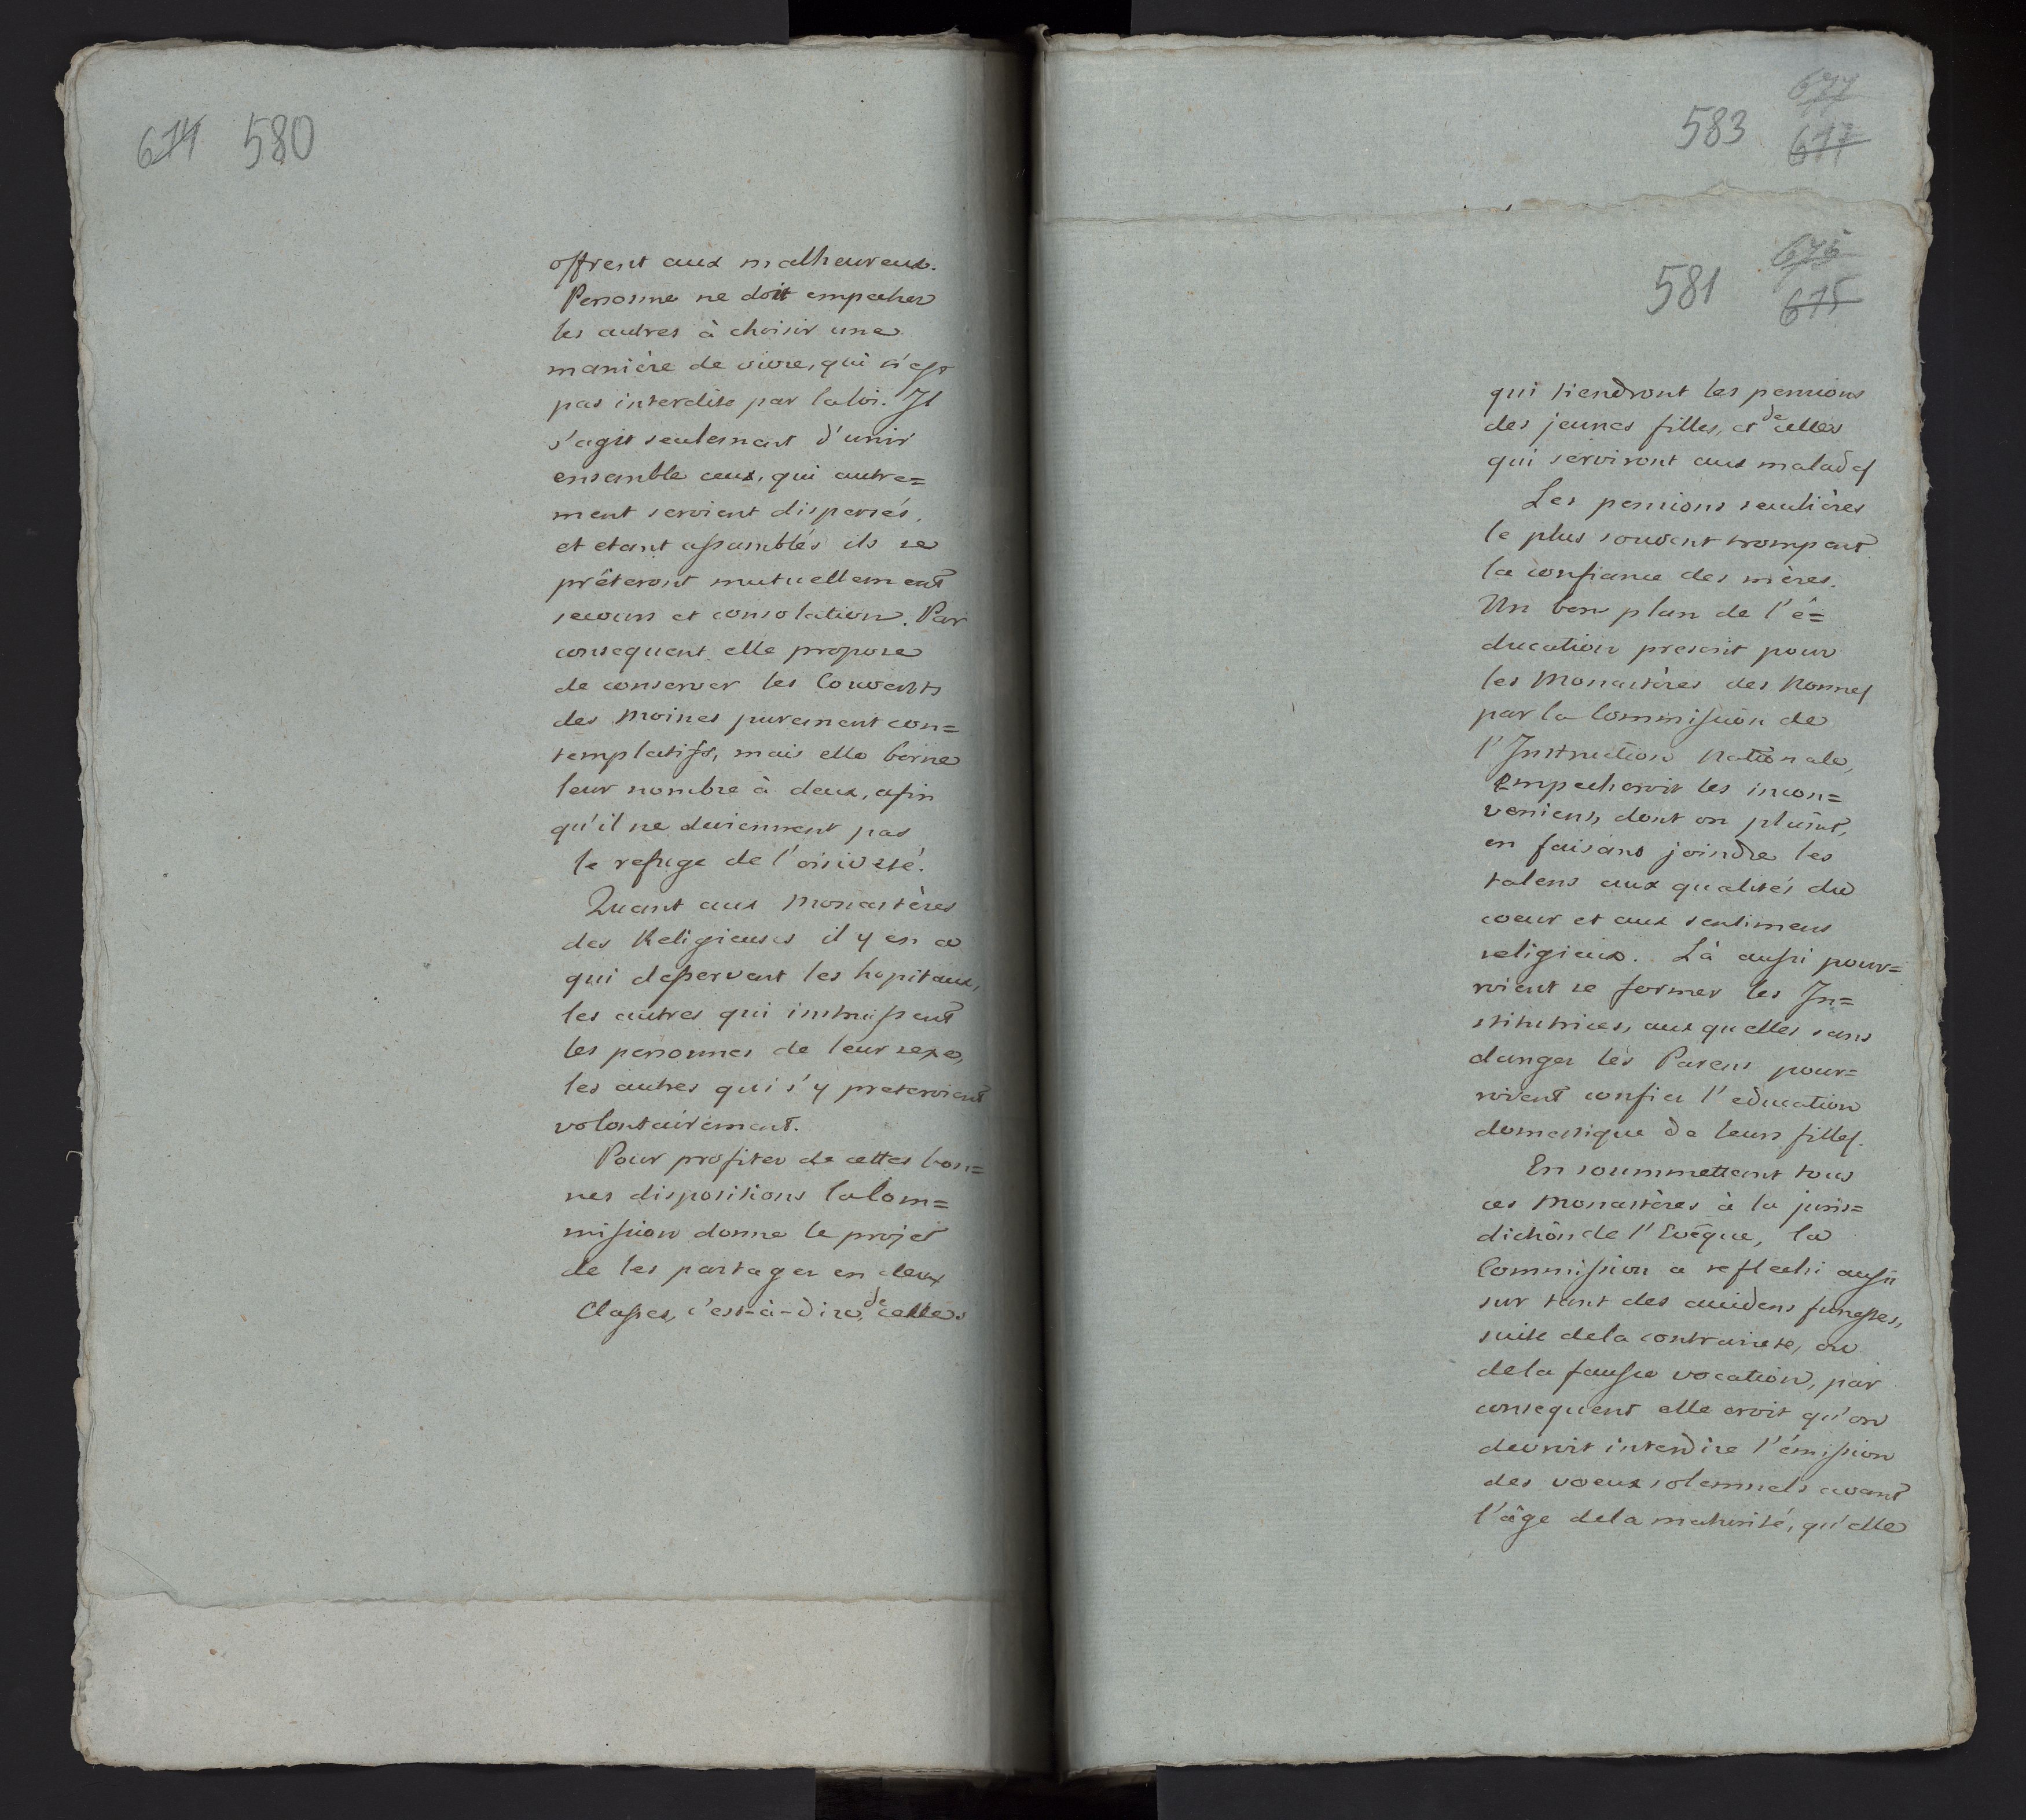 674 580
offrent aux malheureux.
Personne ne doit empecher
les autres à choisir une
manière de vivre, qui n'est
pas interdite par la loi. Il
s'agit seulement d'unir
ensemble ceux, qui autre=
ment seroient dispersés,
et etant assemblés ils se
prêteront mutuellement
secours et consolation. Par
consequent elle propose
de conserver les Couvents
des Moines purement con=
templatifs, mais elle borne
leur nombre à deux, afin
qu'il ne deviennent pas
le refuge de l'oisiveté.
Quant aux Monastères
des Religieuses il y en a
qui desservent les hopitaux,
les autres qui instruisent
les personnes de leur sexe,
les autres qui s'y preteroient
volontairement.
Pour profiter de cettes bon=
nes dispositions la Com=
mission donne le projet
de les partager en deux
Classes, c'est-à-dire, de celles
583 677
677
581 675
675
qui tiendront les pensions
des jeunes filles, et de celles
qui serviront aux malades
Les pensions seculières
le plus souvent trompent
la confiance des mères.
Un bon plan de l'é=
ducation prescrit pour
les Monastères des Nonnes
par la Commission de
l'Instruction Nationale,
empecheroit les incon=
veniens, dont on plaint,
en faisant joindre les
talens aux qualités du
coeur et aux sentimens
religieux. Là aussi pour=
roient se former les In=
stitutrices, aux quelles sans
danger les Parens pour=
roient confier l'education
domestique de leurs filles.
En soummettant tous
ces Monastères à la juris=
diction de l'Evêque, la
Commission a reflechi aussi
sur tant des accidens funestes,
suite de la contrainte, ou
de la fausse vocation, par
consequent elle croit qu'on
devroit interdire l'émission
des voeux solemnels avant
l'âge de la maturité, qu'elle